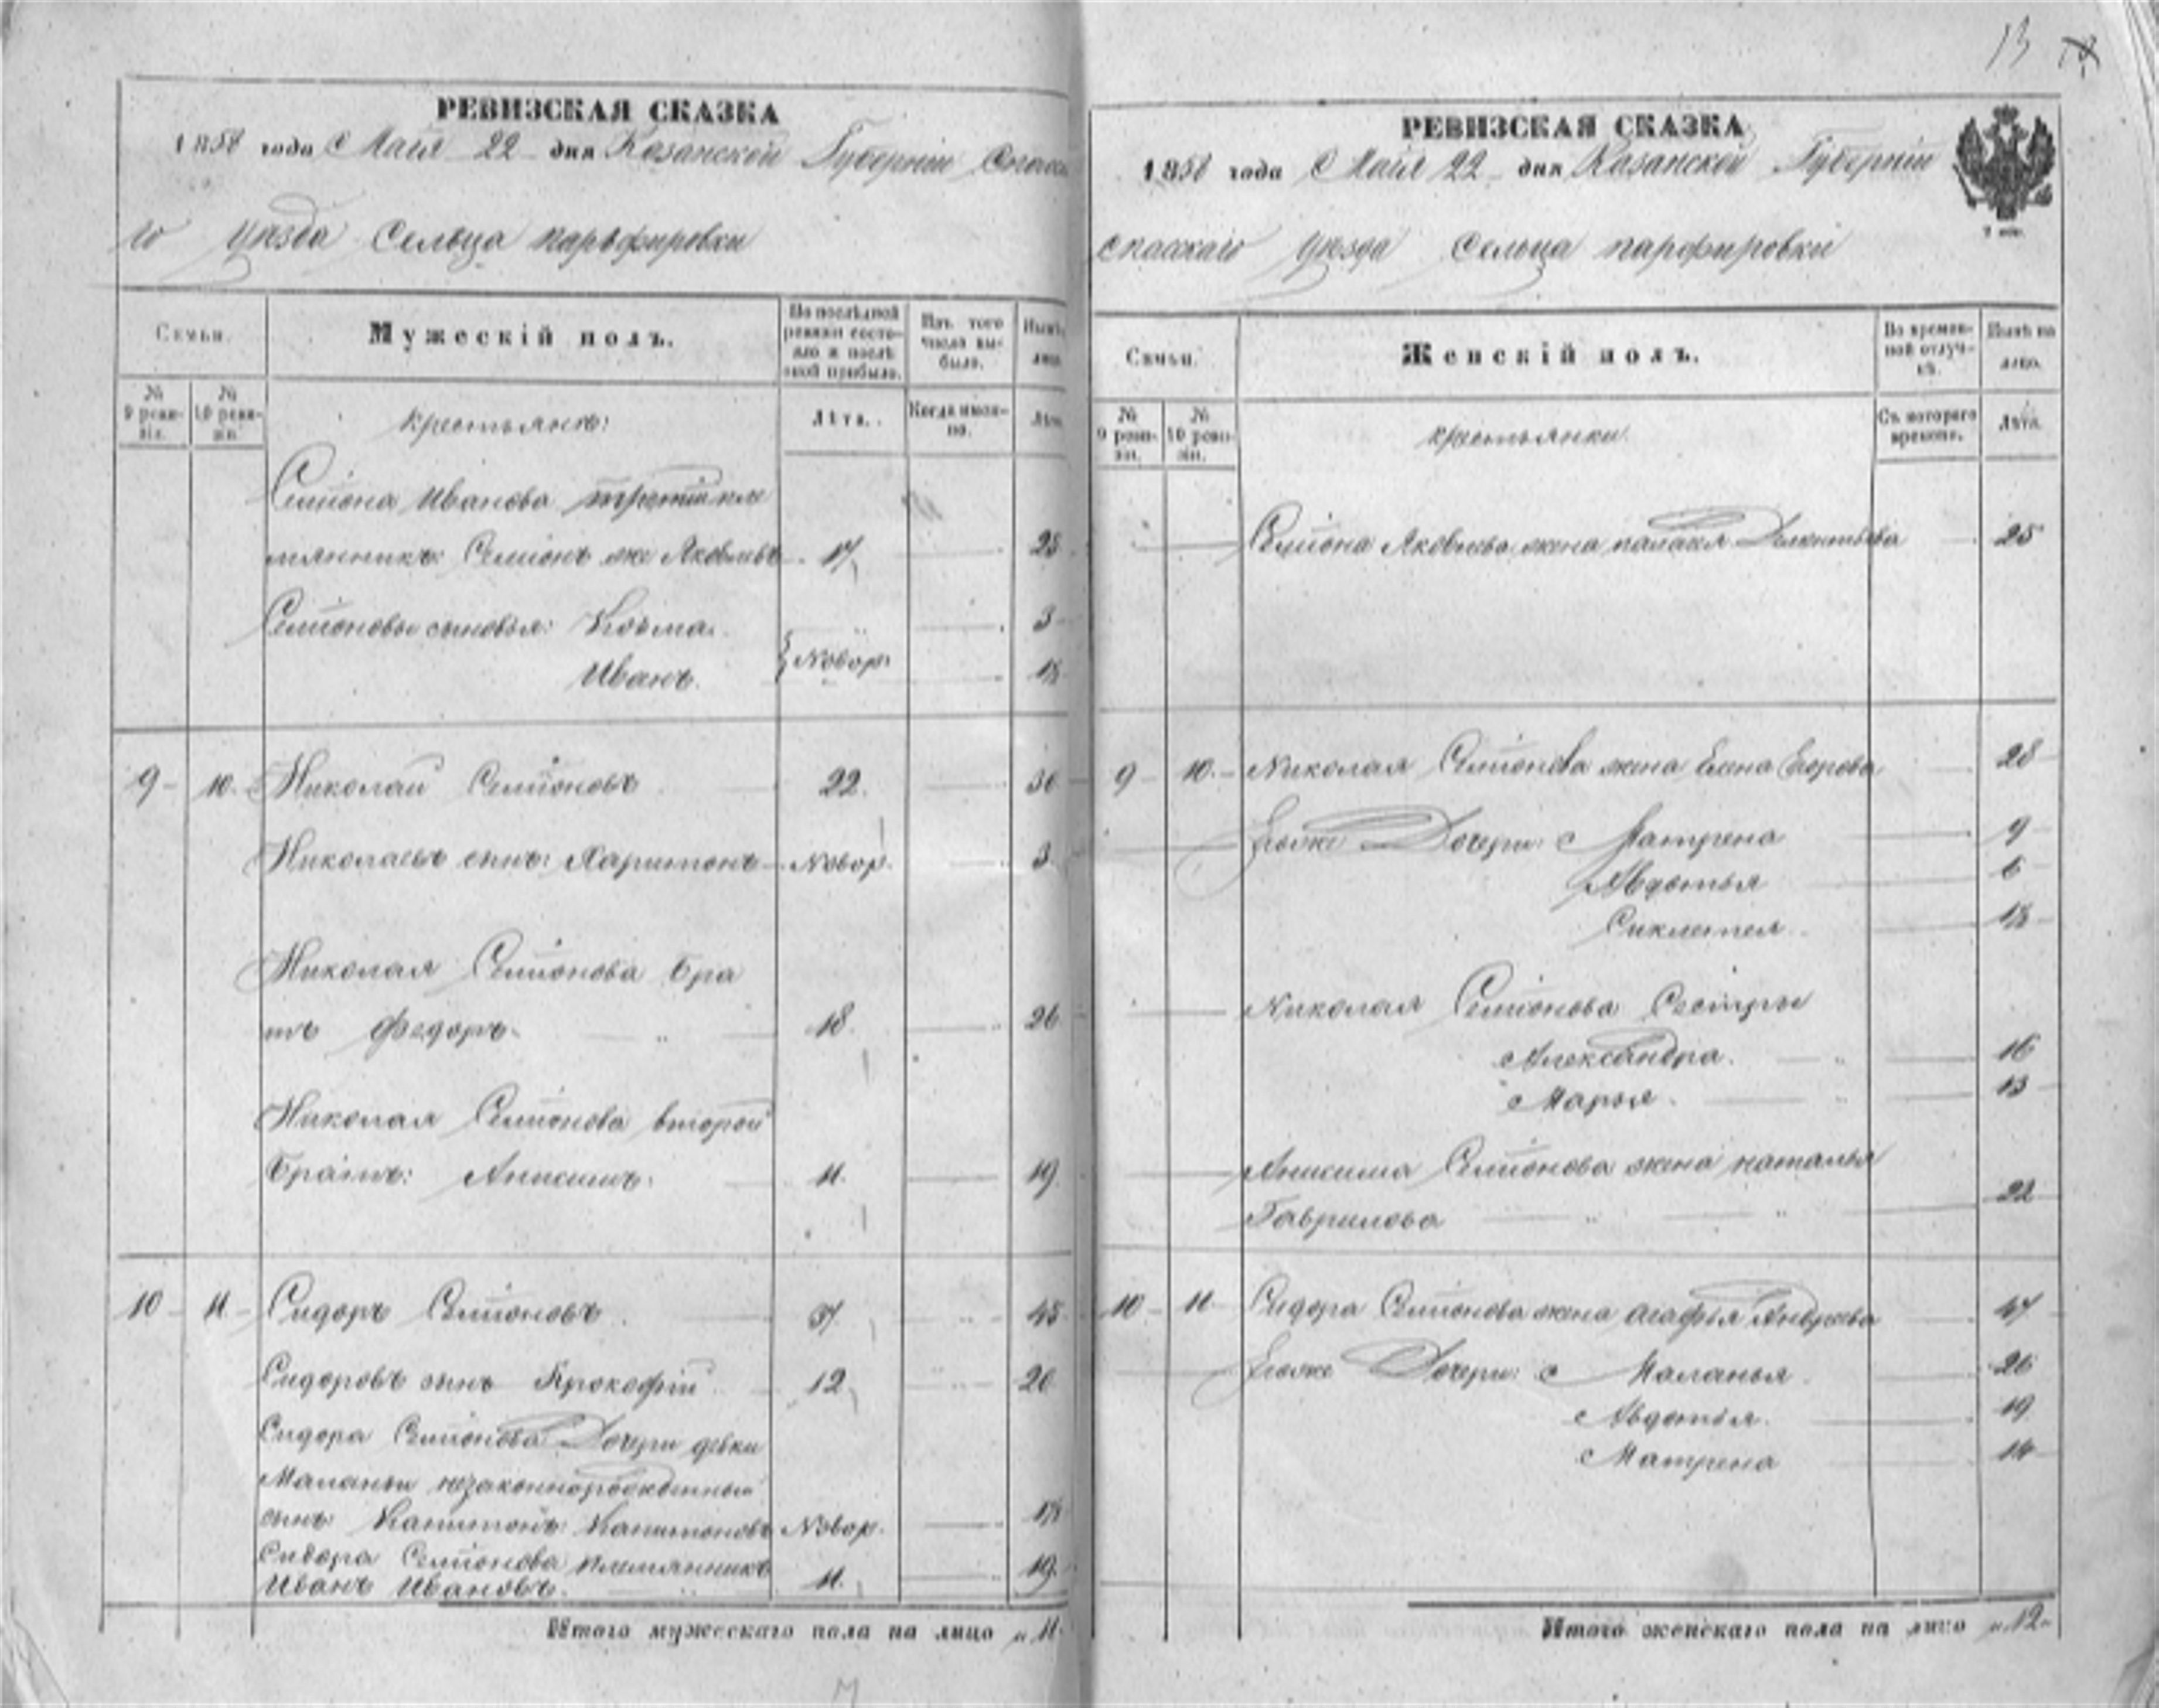 13
РЕВИЗСКАЯ СКАЗКА
1858 года Маія 22 дня Казанской Губерніи Спасска
го уезда Сельца парьфировки
Семьи.
Мужескій полъ.
По послѣдной ревизіи состояло и послѣ оной прибыло.
Изъ того числа выбыло.
Нынѣ лицо.
№ 9 ревизіи.
№ 10 ревизіи.
крестьянѣ:
Лѣта.
Когда именно.
Лѣта.
Семіона Иванова третій пле
мянникъ Семіонъ же Яковлевъ 17 25
Семіоновы сыновья: Козьма 3
Иванъ. Новор: 1/2
9 10 Николай Семіоновъ 22. 30
Николаевъ сынъ: Харитонъ Новор. 3
Николая Семіонова бра
тъ Федоръ 18. 26
Николая Семіонова второй
братъ: Анисимъ. 11. 19
10 11 Сидоръ Семіоновъ 37 45
Сидоровъ сынъ Прокофій 12 20
Сидора Семіонова Дочери девки
Маланьи незаконнорожденный
сынъ: Капитонъ Капитоновъ Новор. 1/2
Сидора Семіонова племянникъ
Иванъ Ивановъ. 11. 19.
Итого мужескаго пола на лицо 11
РЕВИЗСКАЯ СКАЗКА
1858 года Маія 22 дня Казанской Губерніи
спасскаго уезда Сельца парфировки
Семьи.
Женскій полъ.
Во временной отлучкѣ.
Нынѣ на лицо.
№ 9 ревизіи.
№ 10 ревизіи.
крестьянки
Съ котораго времени.
Лѣта.
Семіона Яковлева жена палагя 25
9 10. Николая Семіонова жена Елена Егорова 28
Егоже Дочери: Матрена 9
Авдотья 6
Сиклетея 1/2
Николая Семіонова Сестры
Александра. 16
Марья. 13
Анисима Семіонова жена наталья
Гаврилова 22
10 11 Сидора Семіонова жена агафья Андреева 47
Егоже Дочери: Маланья 26
Авдотья. 19
Матрена 14
Итого женскаго пола на лицо 12